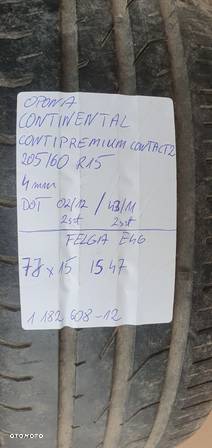 OPONA
CONTINENTAL
CONTIPREMIUMCONTACT2
205/60 R15
4mm
DOT 02/12 / 43/11
2szt 2szt
FELGA E46
7J x 15 IS 47
1 182 608-12
OTOMOTO